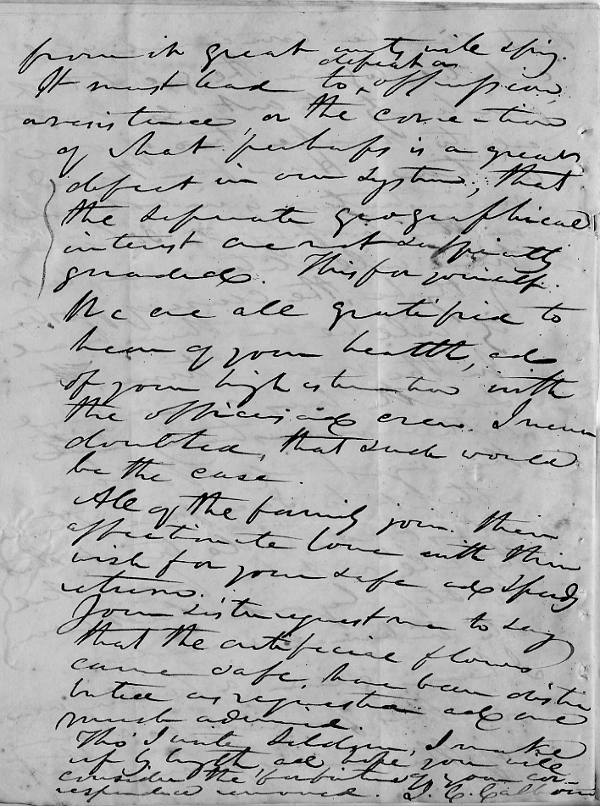 from it great
defeat as
It must lead to oppression,
resistence, or the correction
of what perhaps is a great
defect in our system; that
the seperate geographical
interest are not sufficiently
guarded. This for yourself.
We are all gratified to
hear of your health, and
of your high estimation with
the officers and crew. I never
doubted, that such would
be the case.
All of the family join their
affectionate love with their
wish for your safe and speedy
return.
Your sister request me to say
that the artificial flowers
came safe, have been distri
buted as requested and are
much admired.
Tho' I write seldom, I make
up by length, and hope you will
consider the of your cor-
respondence removed. J. C. Calhoun